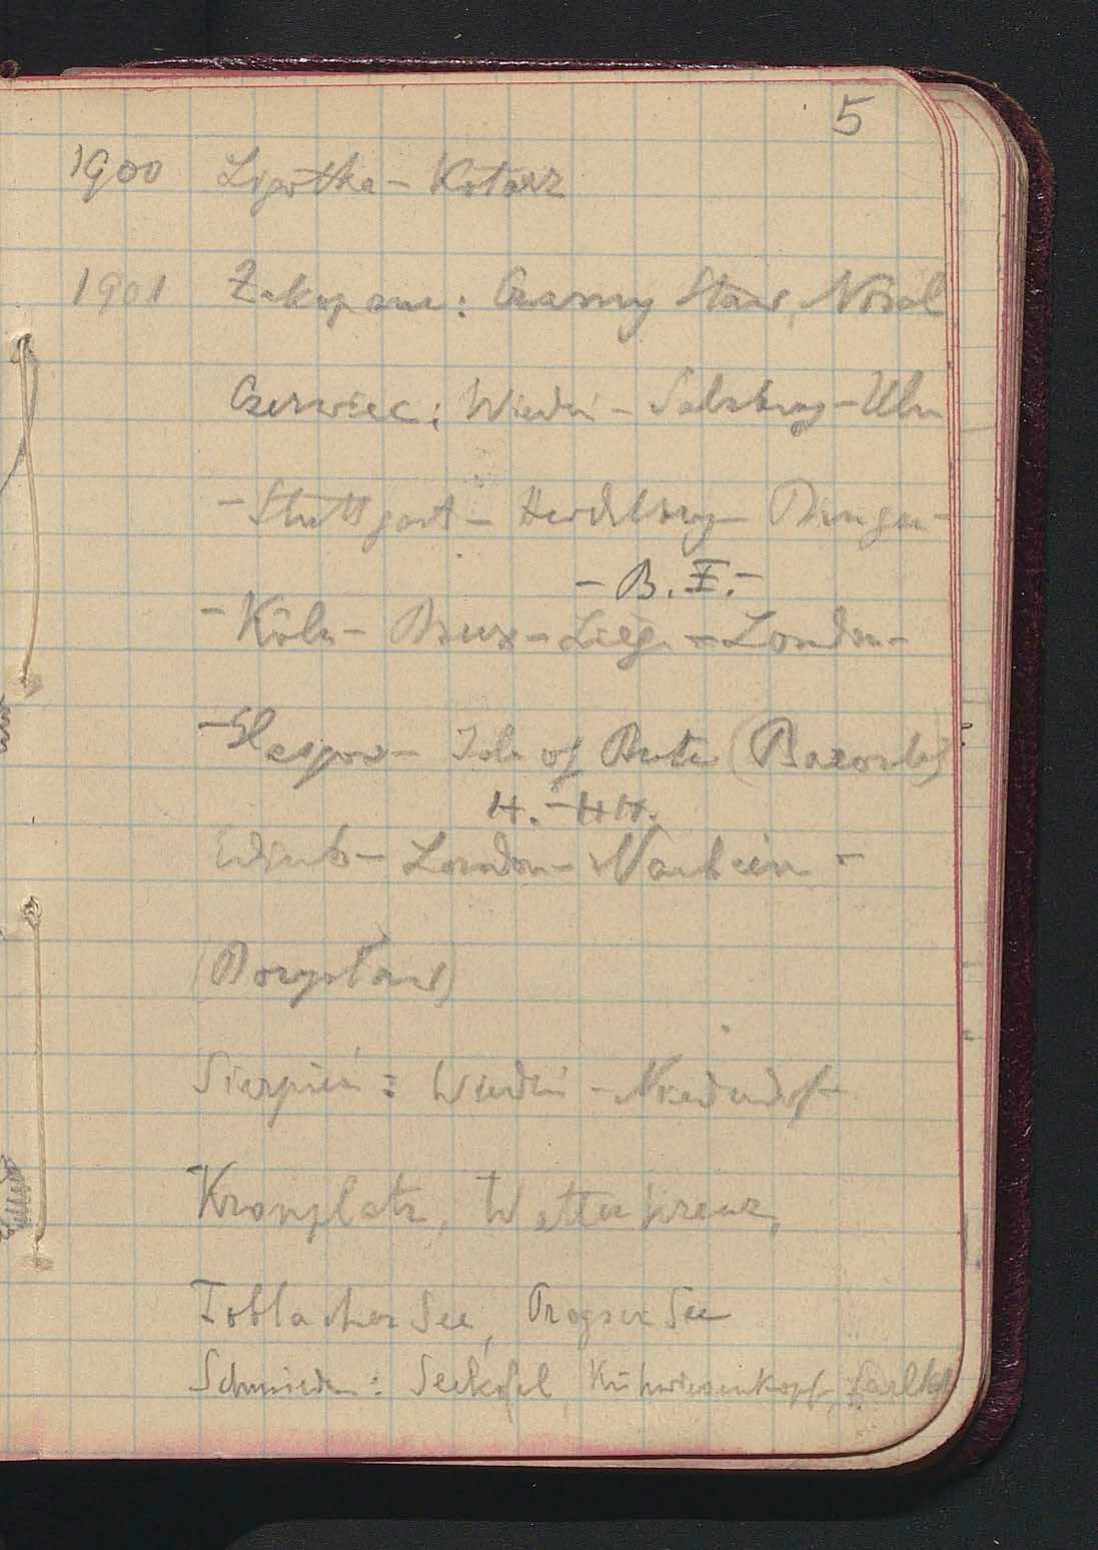 5
1900 Ligotka - Kotarz
1901 Zakopane: Czarny Staw, Nosal
Czerwiec: Wiedeń - Salzburg - Ulm
- Stuttgart - Heidelberg - Bingen -
- B. I. -
- Köln - Brux - Liége - London -
- Glasgow - Isle of Bute (Barone)
H. - HH.
Edinb - London - Nauheim -
(Borysław)
Sierpień: Wiedeń - Niederdorf -
Kronplatz, Wetterkreuz,
Toblacher See, Pragser See
Schmieden: Seekofel, Kühwiesenkopf,